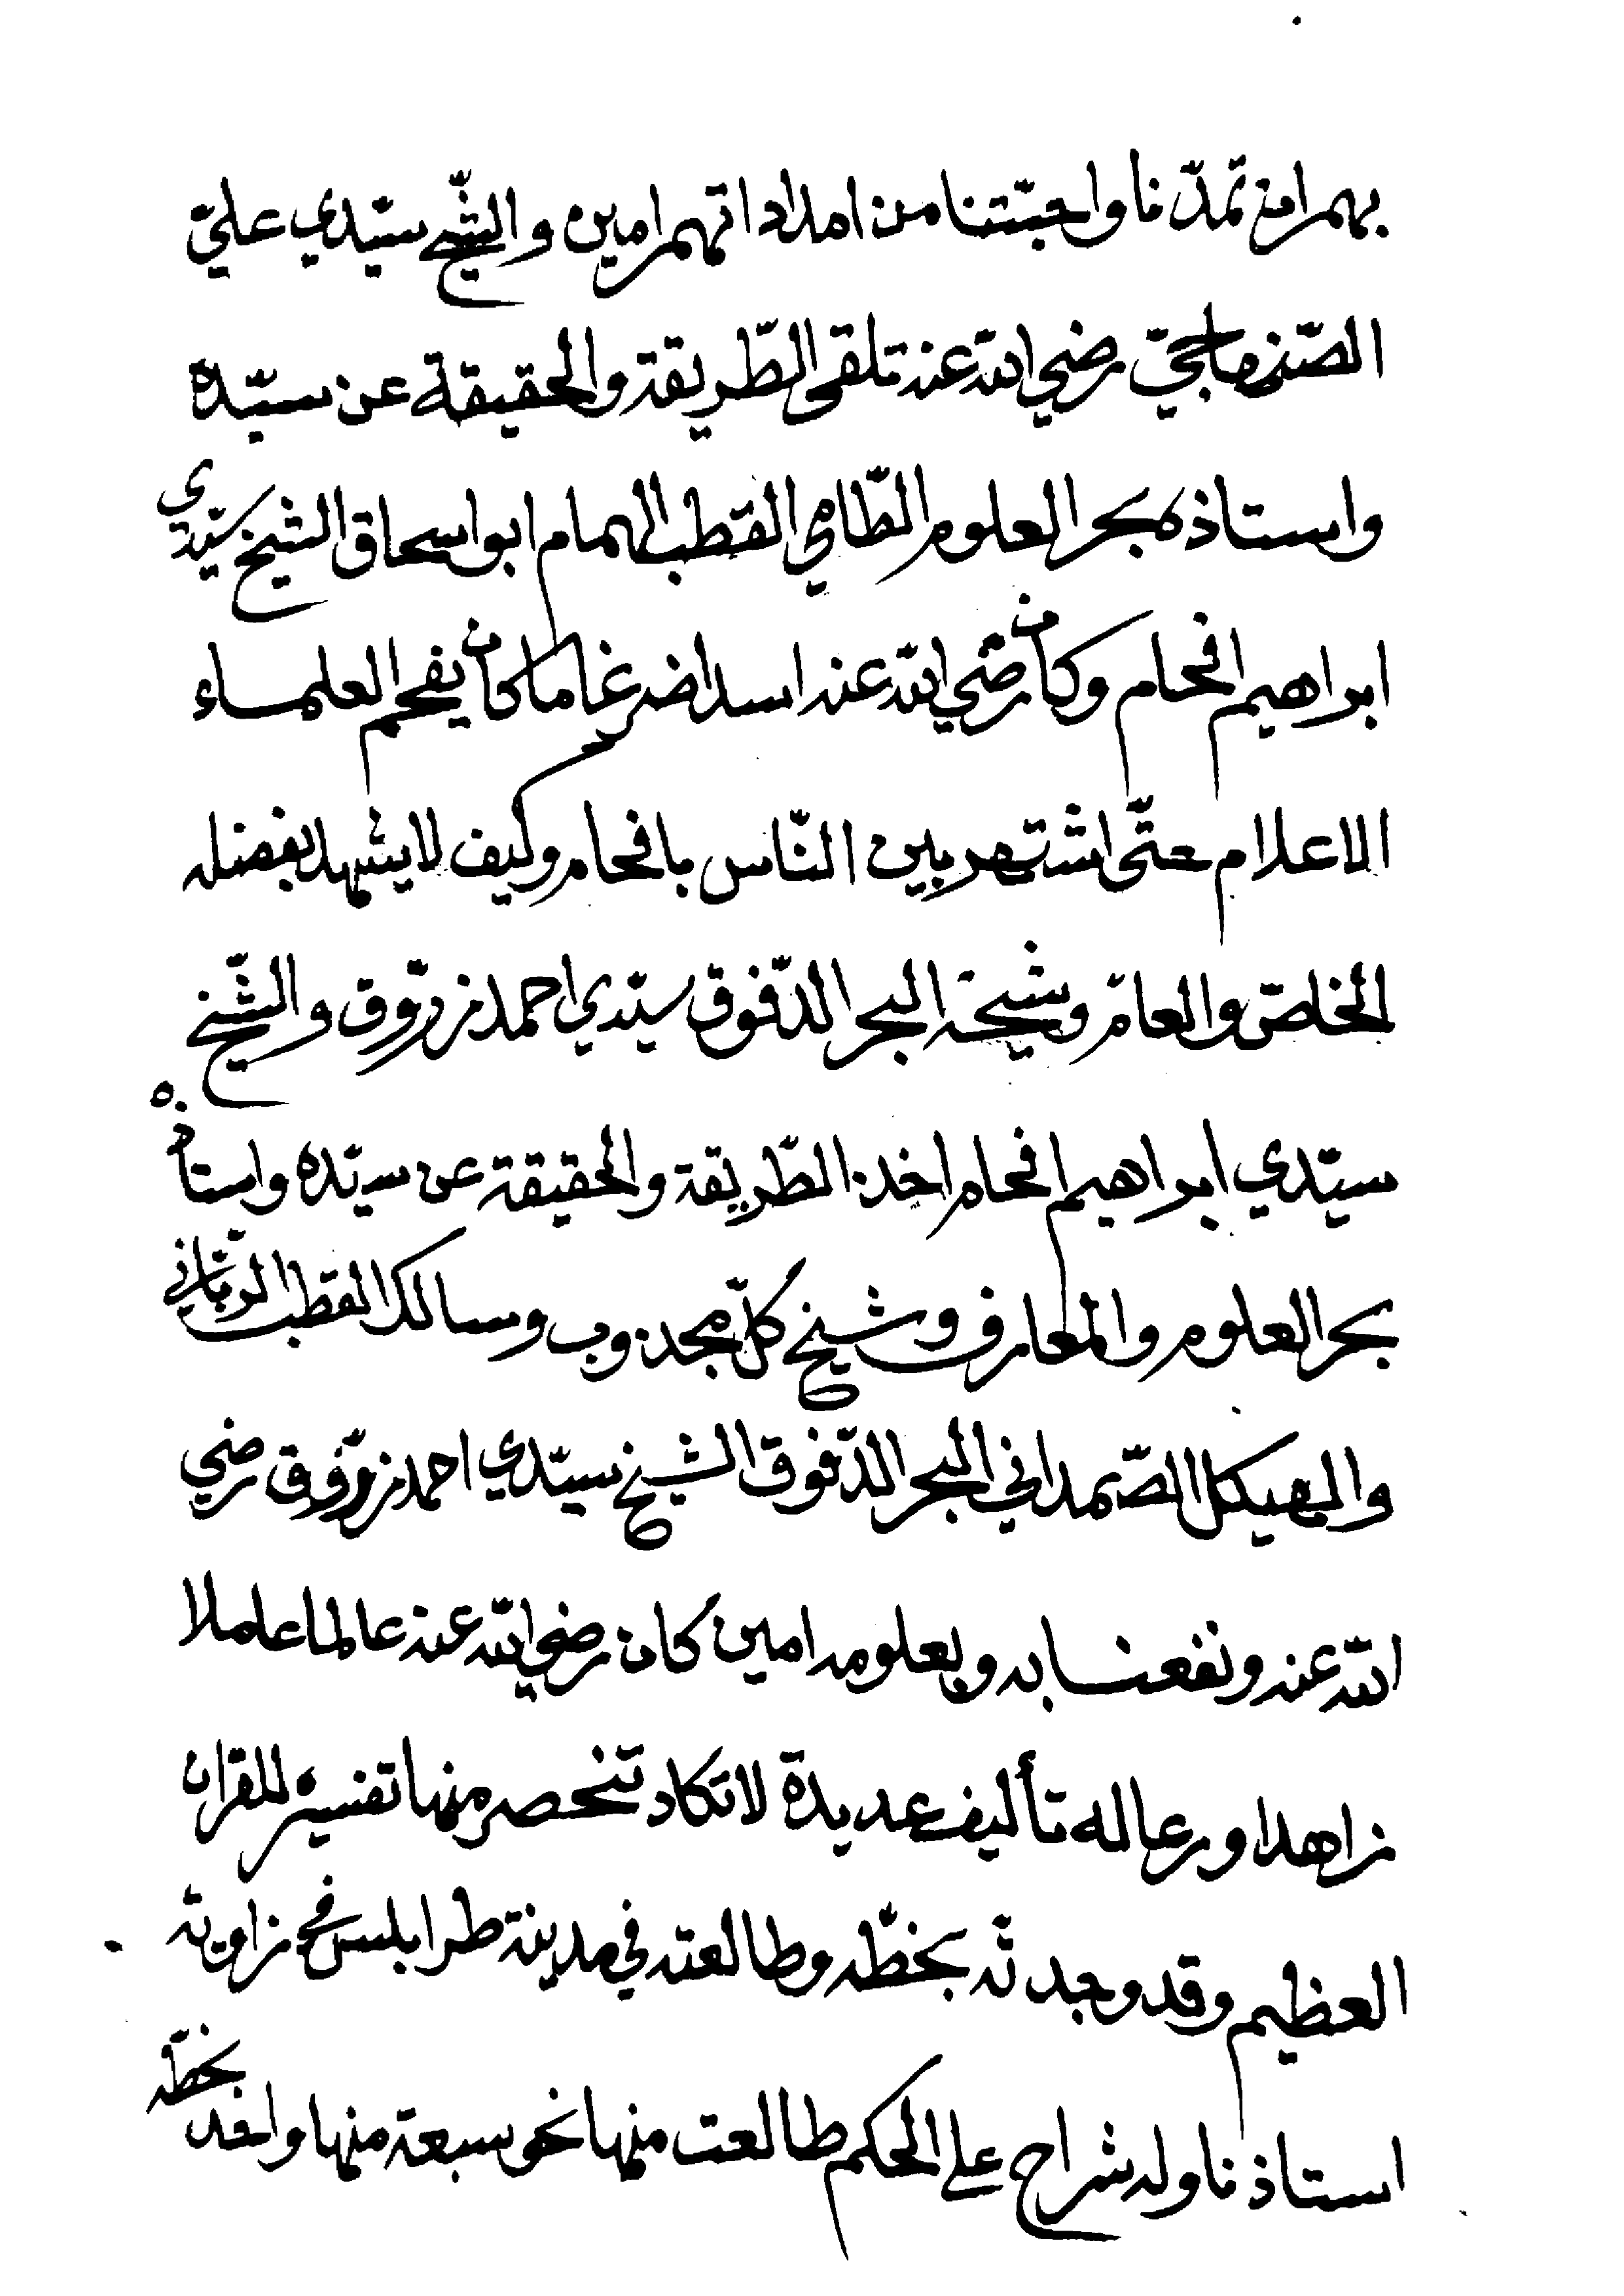 بهم ان تمدّنا واحبّتنا من امداداتهم امين والشّيخ سيّدي عليّ
الصّنهاجيّ رضي الله عنه تلقى الطّريقة والحقيقة عن سيّده
واستاذه بحر العلوم الطّامي القطب الهمام ابو اسحاق الشيخ سيّدي
ابراهيم افحام وكان رضي الله عنه اسدا ضرغاما كان يفحم العلماء
الاعلام حتّى اشتهر بين النّاس بافحام وكيف لا يشهد بفضله
الخاصّ والعامّ وشيخه البحر الدّفوق سيّدي احمد زرّوق والشّيخ
سيّدي ابراهيم افحام اخذ الطّريقة والحقيقة عن سيّده واستاذه
بحر العلوم والمعارف وشيخ كلّ مجذوب وسالك القطب الربّاني
والهيكل الصّمداني البحر الدّفوق الشيخ سيّدي احمد زرّوق رضي
الله عنه ونفعنا به وبعلومه امين كان رضي الله عنه عالما عاملا
زاهدا ورعا له تأليف عديدة لا تكاد تنحصر منها تفسيره للقران
العظيم وقد وجدته بخطّه وطالعته في مدينة طرابلس في زاوية
استاذنا وله شراح على الحكم طالعت منها نحو سبعة منها واحد بخطّه